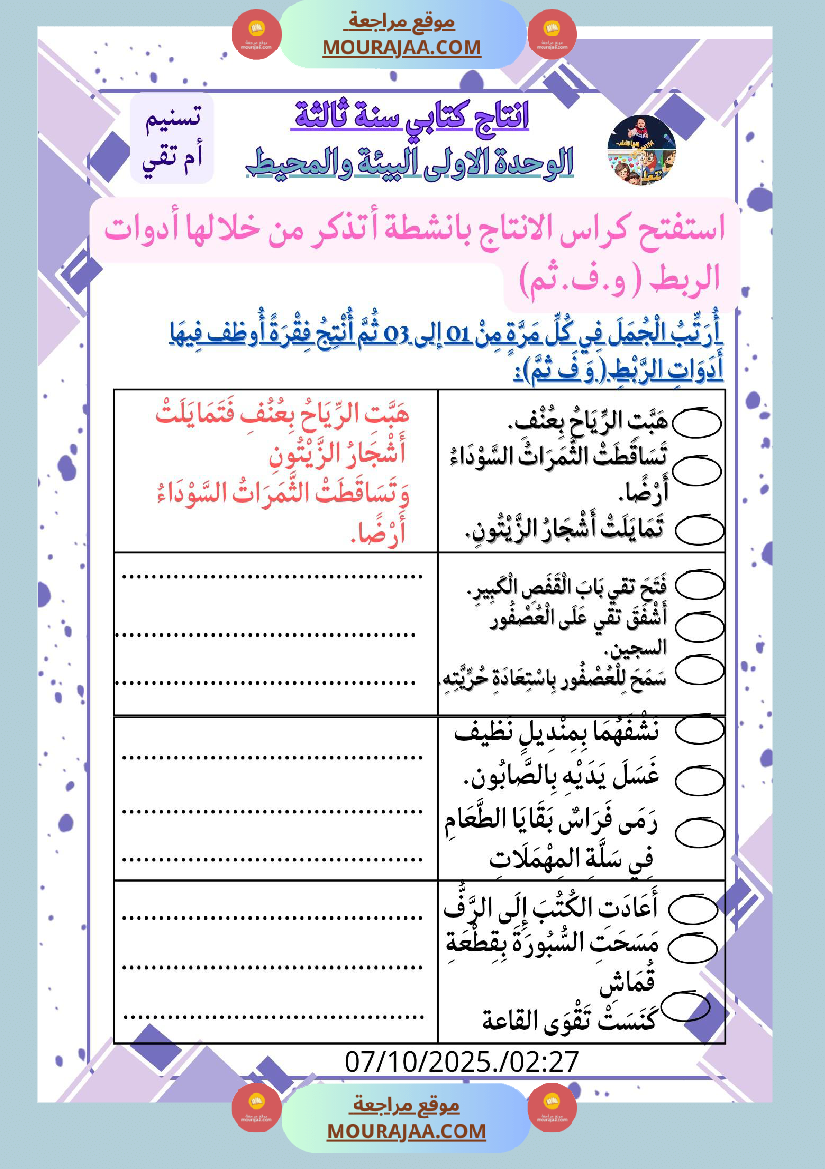 موقع مراجعة
MOURAJAA.COM
انتاج كتابي سنة ثالثة
الوحدة الاولى البيئة والمحيط
تسنيم
أم تقي
استفتح كراس الانتاج بانشطة أتذكر من خلالها أدوات
الربط ( و.ف.ثم)
أُرَتِّبُ الْجُمَلَ فِي كُلِّ مَرَّةٍ مِنْ 01 إلى 03 ثُمَّ أُنْتِجُ فِقْرَةً أُوظف فِيهَا
أَدَوَاتِ الرَّبْطِ( وَ فَ ثمَّ):
هَبَّتِ الرِّيَاحُ بِعُنْفٍ.
تَسَاقَطَتْ الثَّمَرَاتُ السَّوْدَاءُ
أَرْضًا.
تَمَايَلَتْ أَشْجَارُ الزَّيْتُونِ.
هَبَّتِ الرِّيَاحُ بِعُنُفِ فَتَمَايَلَتْ
أَشْجَارُ الزَّيْتُونِ
وَتَسَاقَطَتْ الثَّمَرَاتُ السَّوْدَاءُ
أَرْضًا.
فَتَحَ تقي بَابَ الْقَفَصِ الْكَبِيرِ.
أَشْفَقَ تقي عَلَى الْعُصْفُور
السجين.
سَمَحَ لِلْعُصْفُور بِاسْتِعَادَةِ حُرِّيَّتِهِ.
نَشَّفَهُمَا بِمِنْدِيلٍ نَظِيف
غَسَلَ يَدَيْهِ بِالصَّابُون.
رَمَى فَرَاسٌ بَقَايَا الطَّعَامِ
فِي سَلَّةِ المِهْمَلَاتِ
أَعَادَتِ الكُتُبَ إِلَى الرَّفِّ
مَسَحَتِ السُّبُورَةَ بِقِطْعَةِ
قُمَاشٍ
كَنَسَتْ تَقْوَى القاعة
07/10/2025./02:27
موقع مراجعة
MOURAJAA.COM